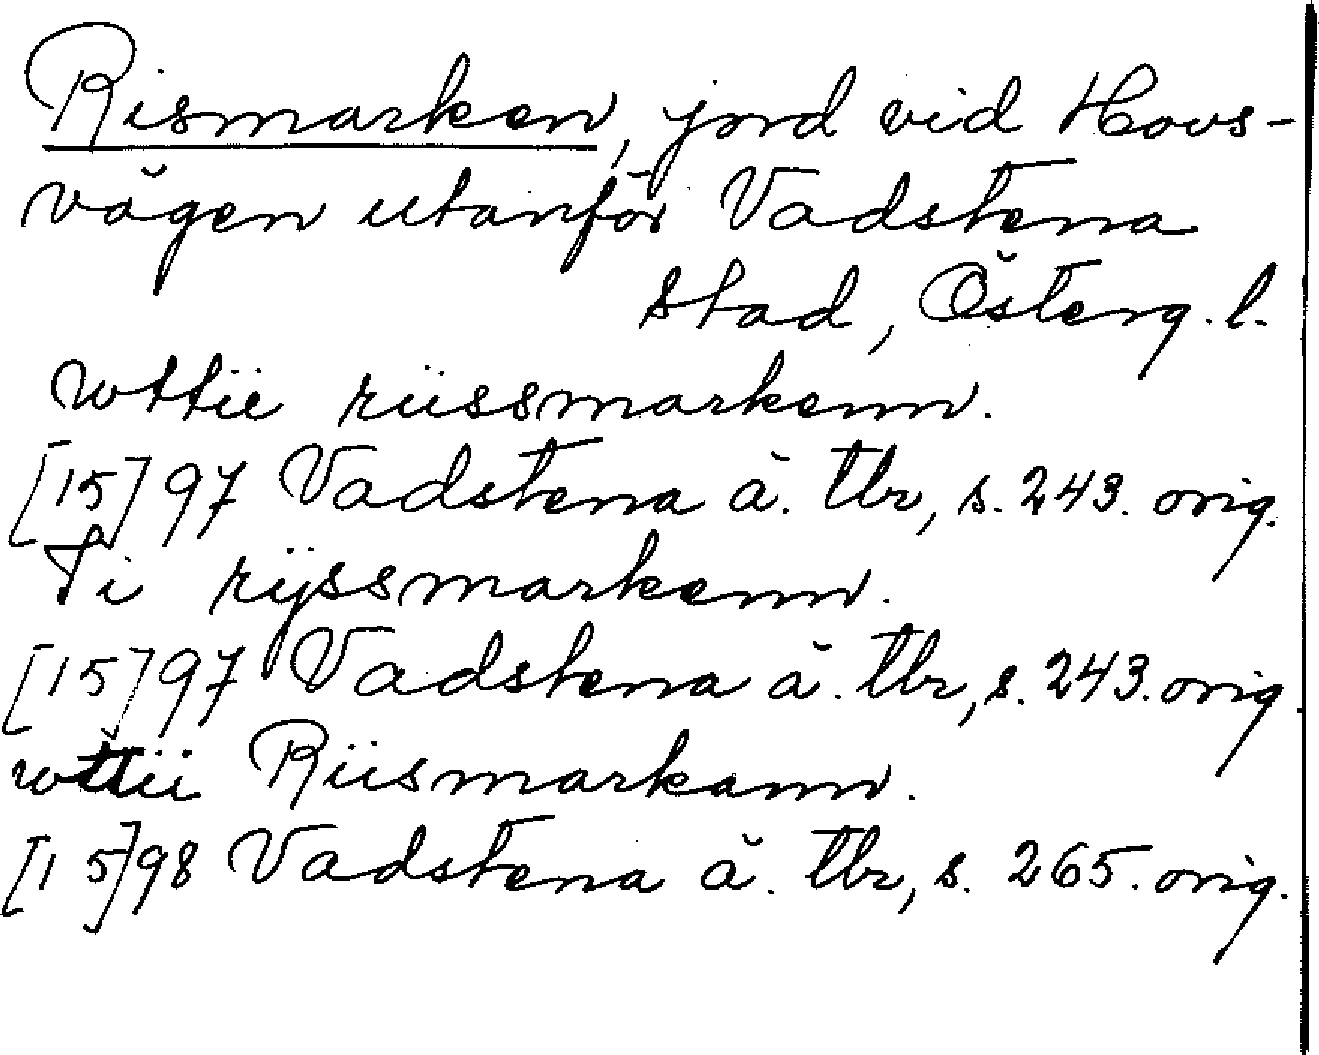 Rismarken, jord vid Hovs-
vägen utanför Vadstena
stad, Österg. l.
wttii riissmarkenn.
[15]97 Vadstena ä. tbr, s. 243. orig.
Ti rÿssmarkenn.
[15]97 Vadstena ä. tbr, s. 243. orig.
wttii Riismarkann.
[15]98 Vadstena ä. tbr, s. 265. orig.